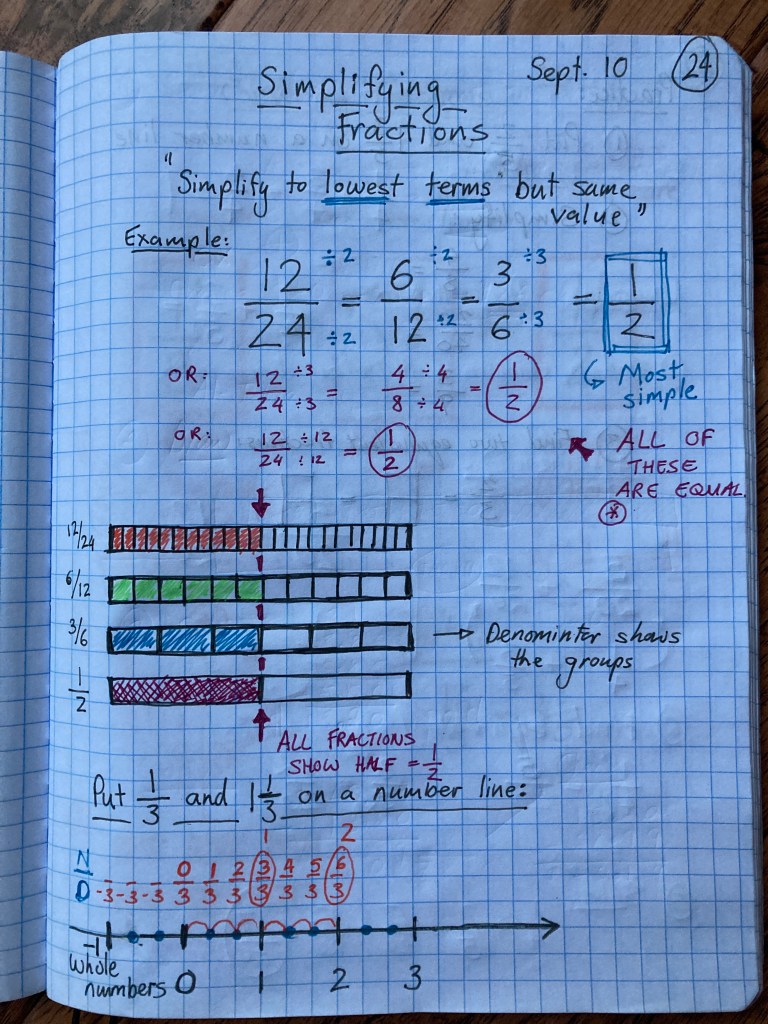 Sept. 10 24
Simplifying
Fractions
"Simplify to lowest terms but same
value"
Example:
12/24 ÷2/÷2 = 6/12 ÷2/÷2 = 3/6 ÷3/÷3 = 1/2
OR: 12/24 ÷3/÷3 = 4/8 ÷4/÷4 = 1/2
Most
simple
OR: 12/24 ÷12/÷12 = 1/2
ALL OF
THESE
ARE EQUAL.
*
12/24
6/12
3/6 → Denominter shows
the groups
1/2
ALL FRACTIONS
SHOW HALF = 1/2
Put 1/3 and 1 1/3 on a number line:
1 2
N/D -/-3 -/-3 -/-3 0/3 1/3 2/3 3/3 4/3 5/3 6/3
-1 0 1 2 3
Whole
numbers